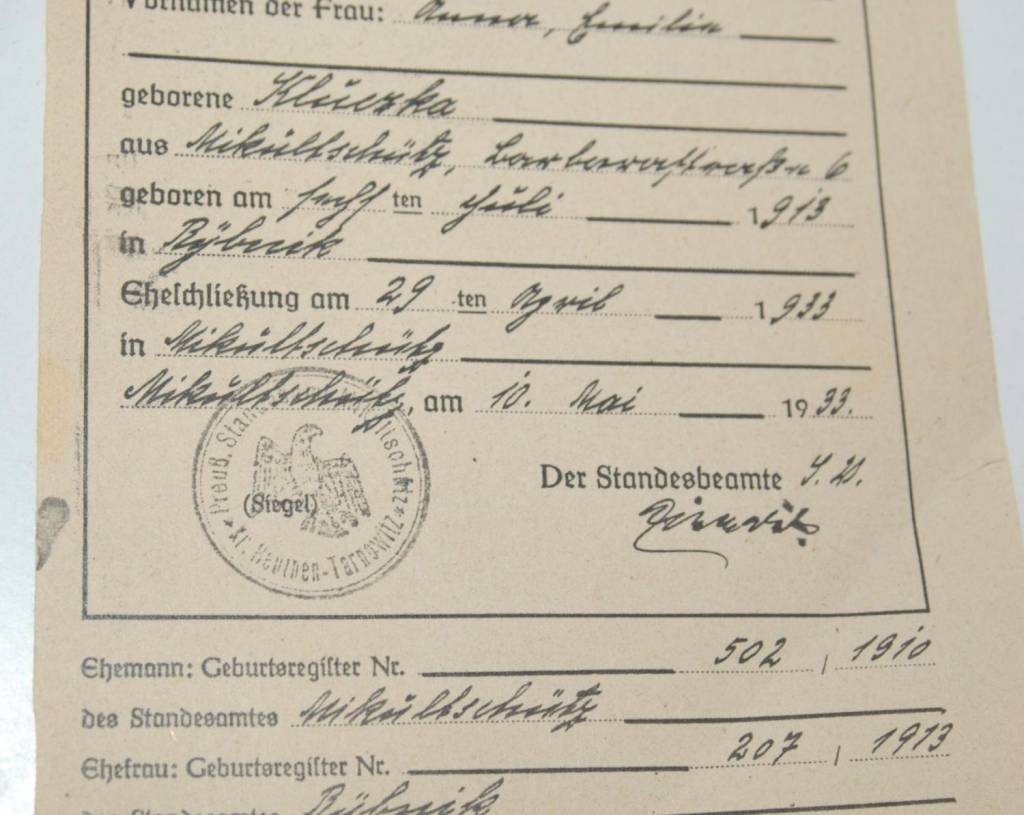 Vornamen der Frau: Anna, Emilia
geborene Kluczka
aus Mikultschütz, Barbarastraße 6
geboren am sechsten Juli 1913
in Rybnik
Eheschließung am 29 ten April 1933
in Mikultschütz
Mikultschütz, am 10. Mai 1933.
Preuß. Standesamt Mikultschütz
Kr. Beuthen-Tarnowitz
(Siegel)
Der Standesbeamte I. V.
Ehemann: Geburtsregister Nr. 502 / 1910
des Standesamtes Mikultschütz
Ehefrau: Geburtsregister Nr. 207 / 1913
des Standesamtes Rybnik